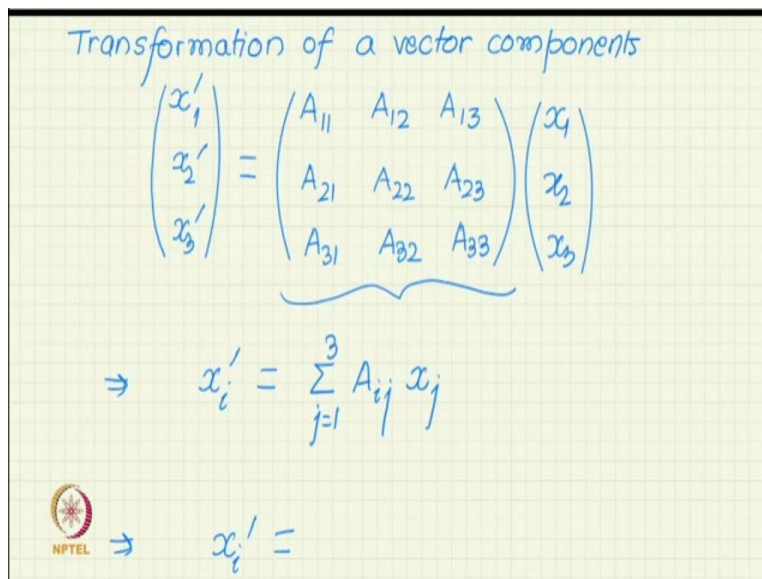 Transformation of a vector components
(x₁′ x₂′ x₃′) = (A₁₁ A₁₂ A₁₃ A₂₁ A₂₂ A₂₃ A₃₁ A₃₂ A₃₃) (x₁ x₂ x₃)
⇒ xᵢ′ = Σ_{j=1}^{3} Aᵢⱼ xⱼ
⇒ xᵢ′ =
NPTEL